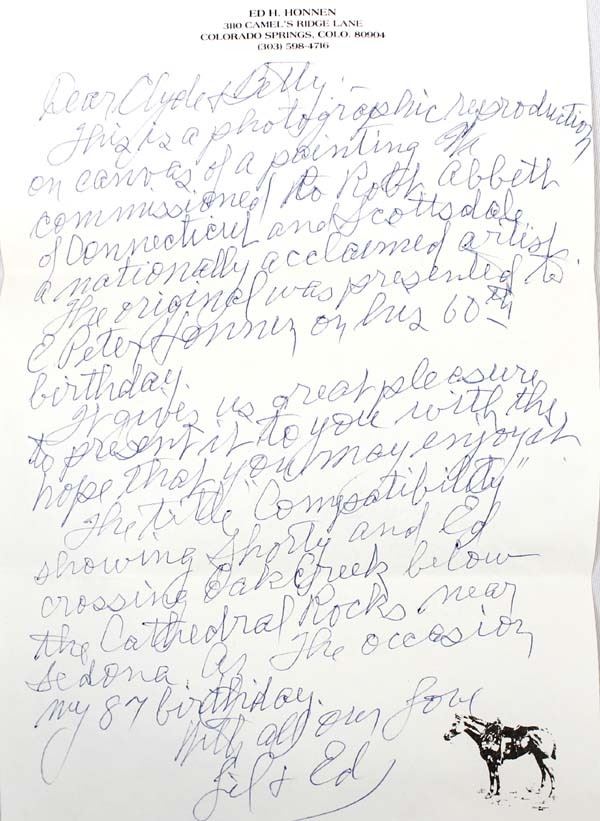 ED H. HONNEN
3110 CAMEL'S RIDGE LANE
COLORADO SPRINGS, COLO. 80904
(303) 598-4716
Dear Clyde & Betty:
This is a photographic reproduction
on canvas of a painting
commissioned to Robt. Abbett
of Connecticut and Scottsdale
a nationally acclaimed artist.
The original was presented to
E. Peter Honnen on his 60th
birthday.
It gives us great pleasure
to present it to you with the
hope that you may enjoy it
The title "Compatibility"
showing Shorty and Ed
crossing Oak Creek below
the Cathedral Rocks near
Sedona. The occasion
my 87 birthday.
With all our love
& Ed